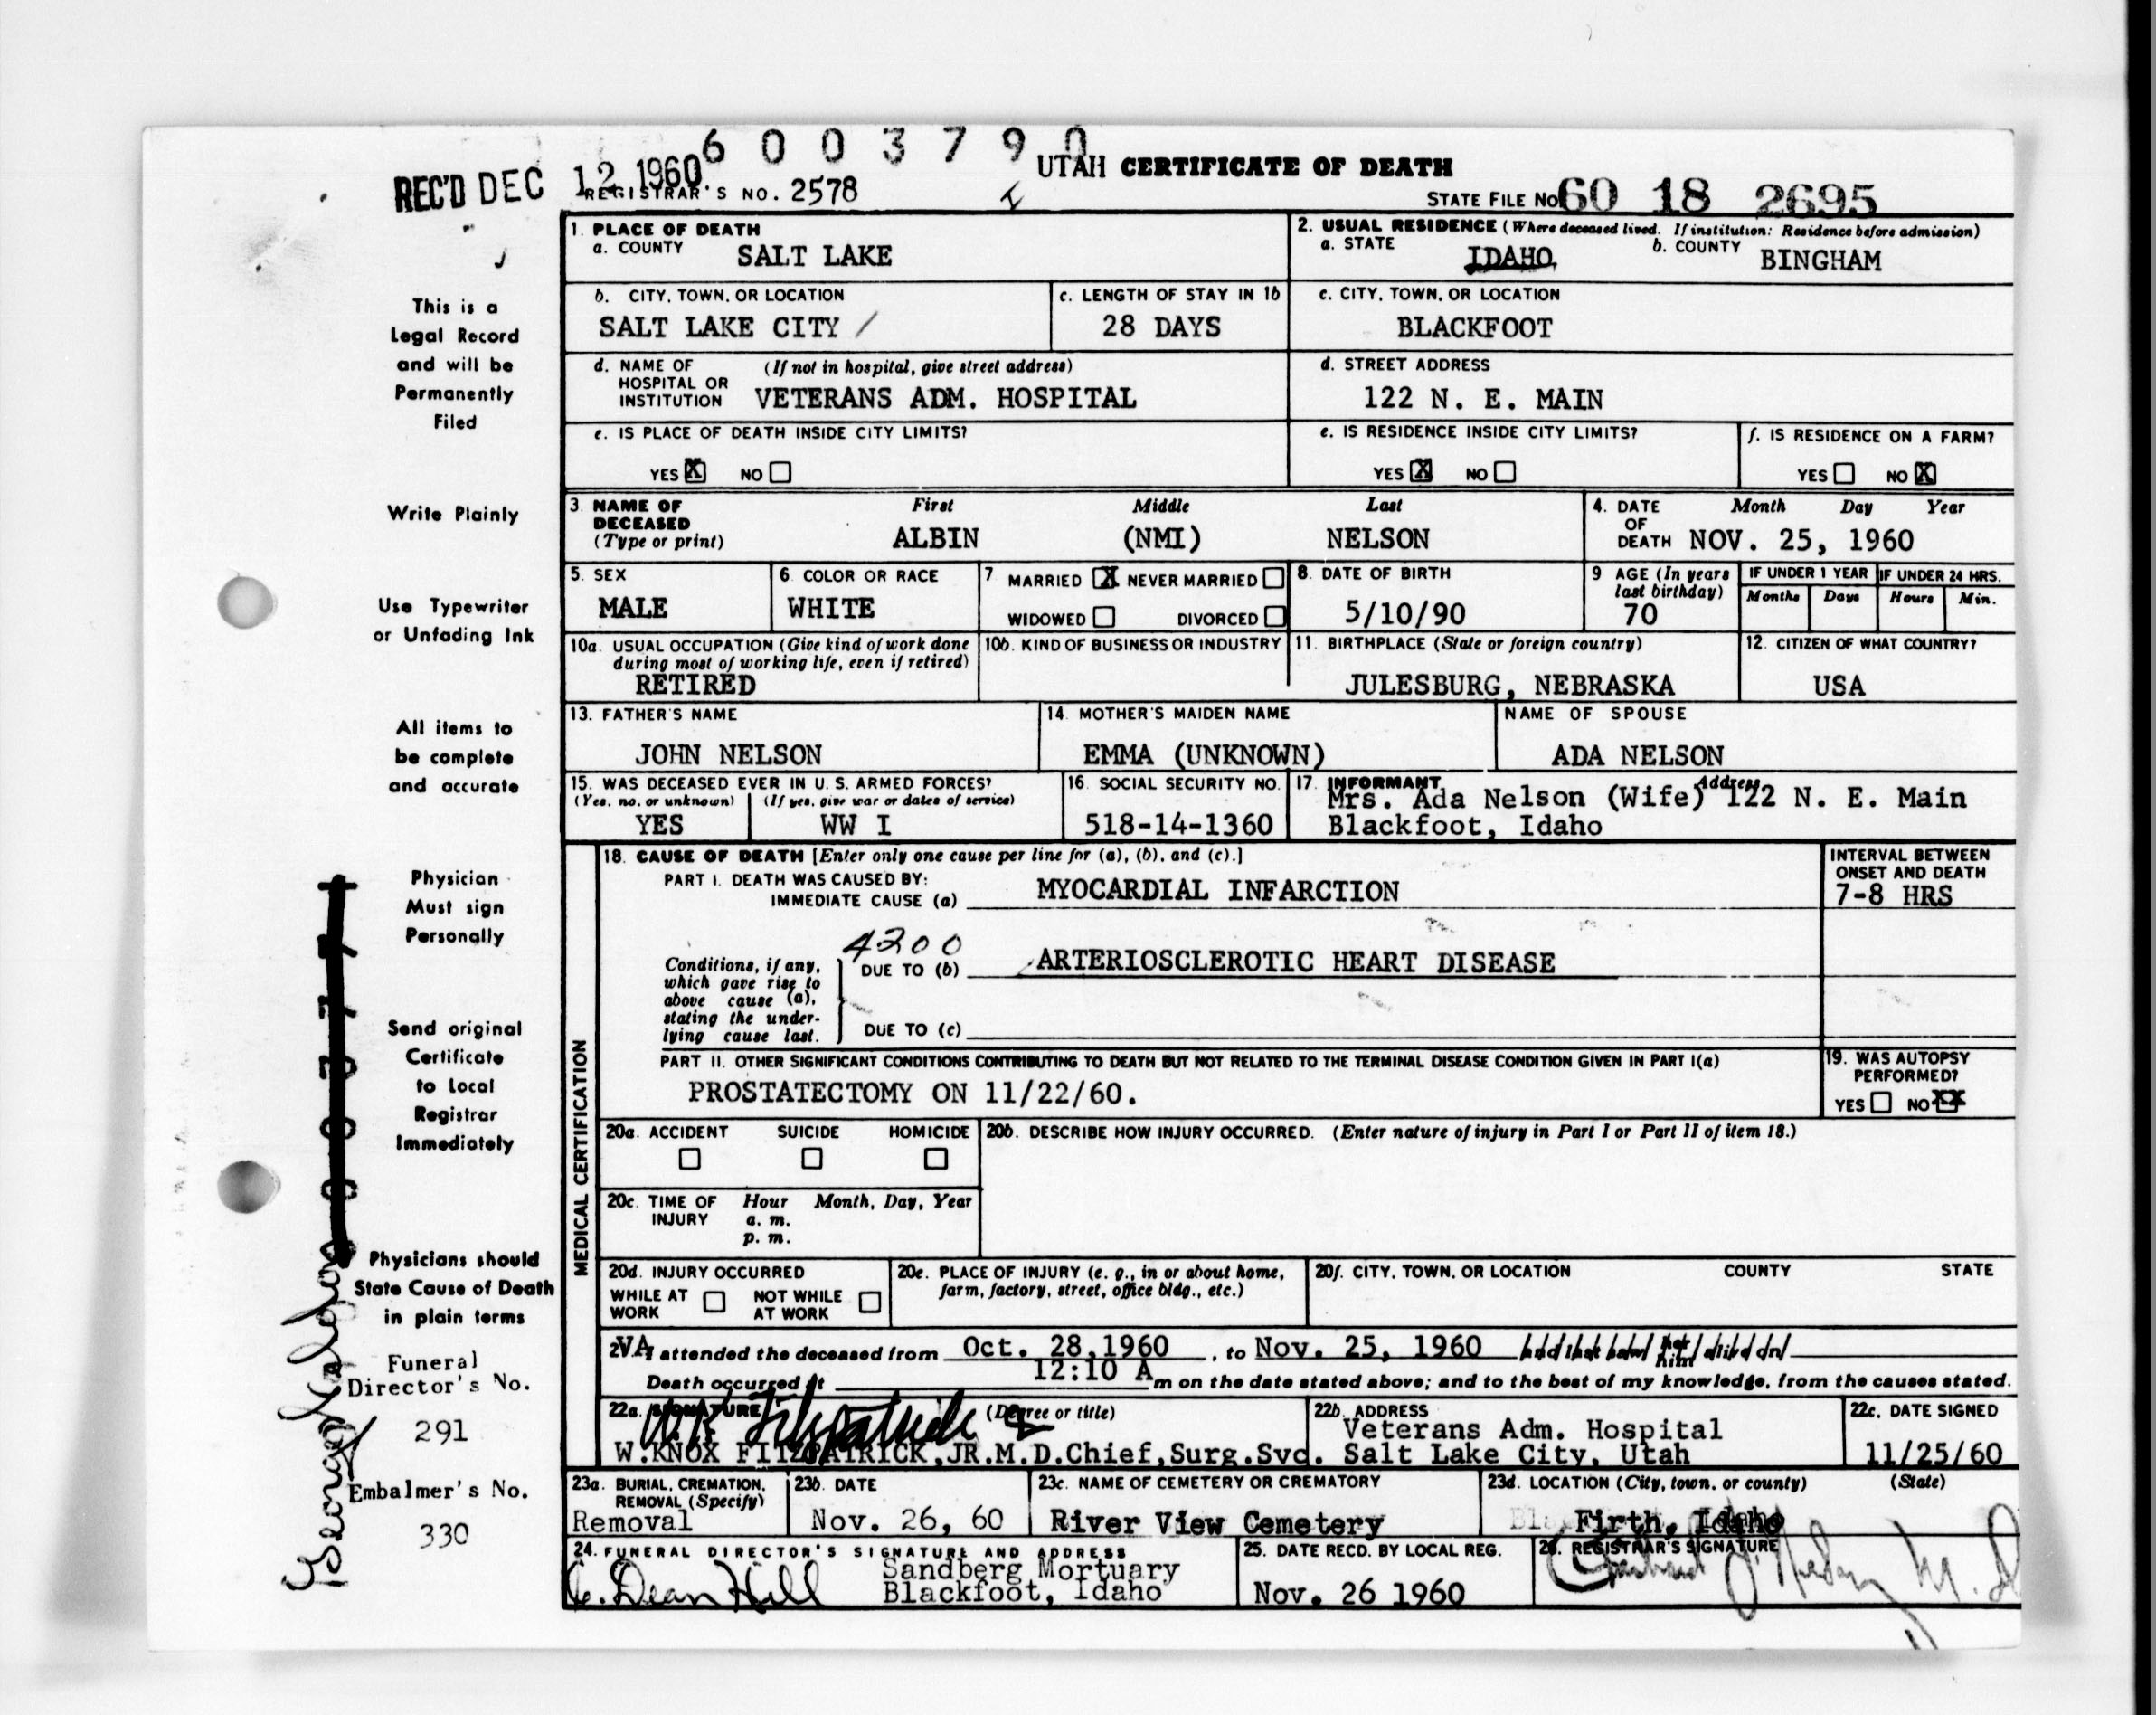 6003790
REC'D DEC 12 1960
REGISTRAR'S NO. 2578
UTAH CERTIFICATE OF DEATH
STATE FILE No 60 18 2695
This is a
Legal Record
and will be
Permanently
Filed
Write Plainly
Use Typewriter
or Unfading Ink
All items to
be complete
and accurate
Physician
Must sign
Personally
Send original
Certificate
to Local
Registrar
Immediately
Physicians should
State Cause of Death
in plain terms
Funeral
Director's No.
291
Embalmer's No.
330
1. PLACE OF DEATH
a. COUNTY SALT LAKE
2. USUAL RESIDENCE (Where deceased lived. If institution: Residence before admission)
a. STATE IDAHO b. COUNTY BINGHAM
b. CITY, TOWN, OR LOCATION
SALT LAKE CITY /
c. LENGTH OF STAY IN 1b
28 DAYS
c. CITY, TOWN, OR LOCATION
BLACKFOOT
d. NAME OF (If not in hospital, give street address)
HOSPITAL OR
INSTITUTION VETERANS ADM. HOSPITAL
d. STREET ADDRESS
122 N. E. MAIN
e. IS PLACE OF DEATH INSIDE CITY LIMITS?
YES X NO
e. IS RESIDENCE INSIDE CITY LIMITS?
YES X NO
f. IS RESIDENCE ON A FARM?
YES NO X
3. NAME OF DECEASED (Type or print)
First Middle Last
ALBIN (NMI) NELSON
4. DATE OF DEATH Month Day Year
NOV. 25, 1960
5. SEX
MALE
6. COLOR OR RACE
WHITE
7 MARRIED X NEVER MARRIED
WIDOWED DIVORCED
8. DATE OF BIRTH
5/10/90
9 AGE (In years last birthday)
70
IF UNDER 1 YEAR IF UNDER 24 HRS.
Months Days Hours Min.
10a. USUAL OCCUPATION (Give kind of work done
during most of working life, even if retired)
RETIRED
10b. KIND OF BUSINESS OR INDUSTRY
11. BIRTHPLACE (State or foreign country)
JULESBURG, NEBRASKA
12. CITIZEN OF WHAT COUNTRY?
USA
13. FATHER'S NAME
JOHN NELSON
14. MOTHER'S MAIDEN NAME
EMMA (UNKNOWN)
NAME OF SPOUSE
ADA NELSON
15. WAS DECEASED EVER IN U. S. ARMED FORCES?
(Yes, no, or unknown) (If yes, give war or dates of service)
YES WW I
16. SOCIAL SECURITY NO.
518-14-1360
17. INFORMANT Address
Mrs. Ada Nelson (Wife) 122 N. E. Main
Blackfoot, Idaho
MEDICAL CERTIFICATION
18. CAUSE OF DEATH [Enter only one cause per line for (a), (b), and (c).]
PART I. DEATH WAS CAUSED BY:
IMMEDIATE CAUSE (a) MYOCARDIAL INFARCTION
INTERVAL BETWEEN
ONSET AND DEATH
7-8 HRS
4200
Conditions, if any,
which gave rise to
above cause (a),
stating the under-
lying cause last.
DUE TO (b) ARTERIOSCLEROTIC HEART DISEASE
DUE TO (c)
PART II. OTHER SIGNIFICANT CONDITIONS CONTRIBUTING TO DEATH BUT NOT RELATED TO THE TERMINAL DISEASE CONDITION GIVEN IN PART I(a)
PROSTATECTOMY ON 11/22/60.
19. WAS AUTOPSY
PERFORMED?
YES NO XX
20a. ACCIDENT SUICIDE HOMICIDE
20b. DESCRIBE HOW INJURY OCCURRED. (Enter nature of injury in Part I or Part II of item 18.)
20c. TIME OF INJURY Hour Month, Day, Year
a. m.
p. m.
20d. INJURY OCCURRED
WHILE AT WORK NOT WHILE AT WORK
20e. PLACE OF INJURY (e. g., in or about home,
farm, factory, street, office bldg., etc.)
20f. CITY, TOWN, OR LOCATION COUNTY STATE
VA attended the deceased from Oct. 28,1960, to Nov. 25, 1960 and last saw her him alive on
Death occurred at 12:10 A m on the date stated above; and to the best of my knowledge, from the causes stated.
22a. SIGNATURE (Degree or title)
W K Fitzpatrick
W.KNOX FITZPATRICK,JR.M.D.Chief,Surg.Svc.
22b. ADDRESS
Veterans Adm. Hospital
Salt Lake City, Utah
22c. DATE SIGNED
11/25/60
23a. BURIAL, CREMATION,
REMOVAL (Specify)
Removal
23b. DATE
Nov. 26, 60
23c. NAME OF CEMETERY OR CREMATORY
River View Cemetery
23d. LOCATION (City, town, or county) (State)
Firth, Idaho
24. FUNERAL DIRECTOR'S SIGNATURE AND ADDRESS
C. Dean Hill
Sandberg Mortuary
Blackfoot, Idaho
25. DATE RECD. BY LOCAL REG.
Nov. 26 1960
26. REGISTRAR'S SIGNATURE
M. D